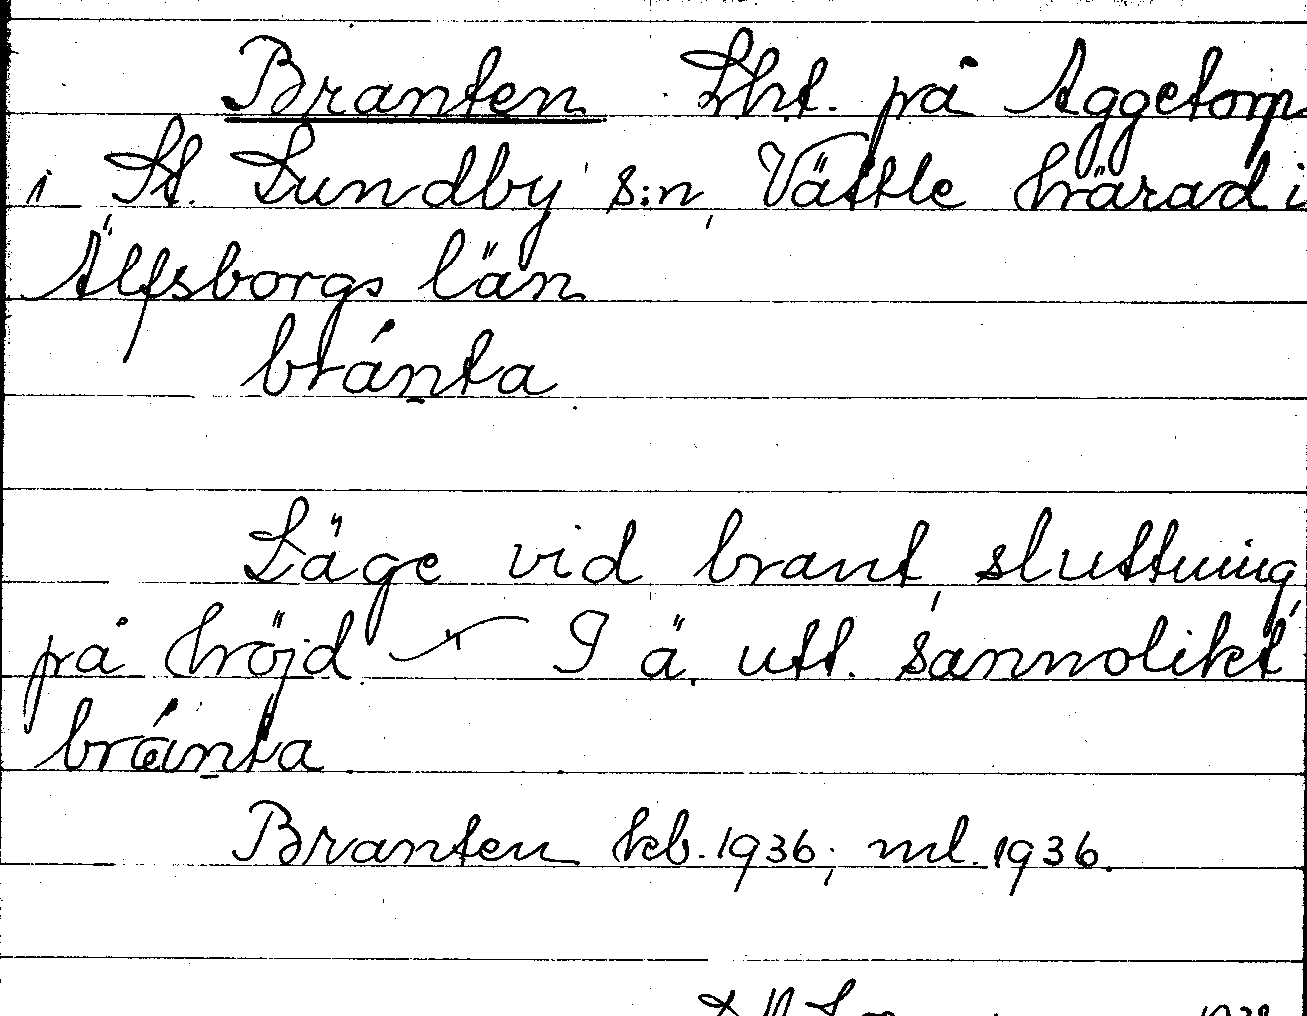 Branten Lht. på Aggetorp
i St. Lundby s:n, Vättle härad i
Älfsborgs län
bránta
Läge vid brant, sluttning
på höjd. – I ä. utt. sannolikt
bránta
Branten kb. 1936; ml. 1936.